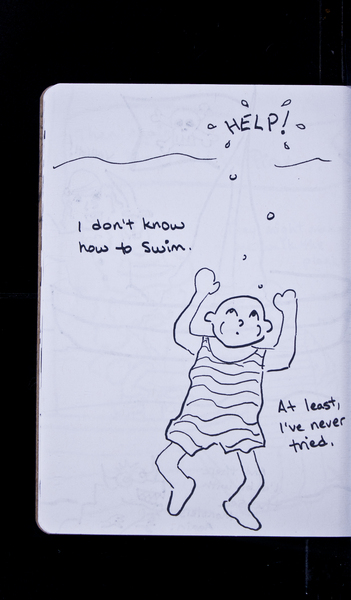 HELP!
I don't know
how to swim.
At least,
I've never
tried.